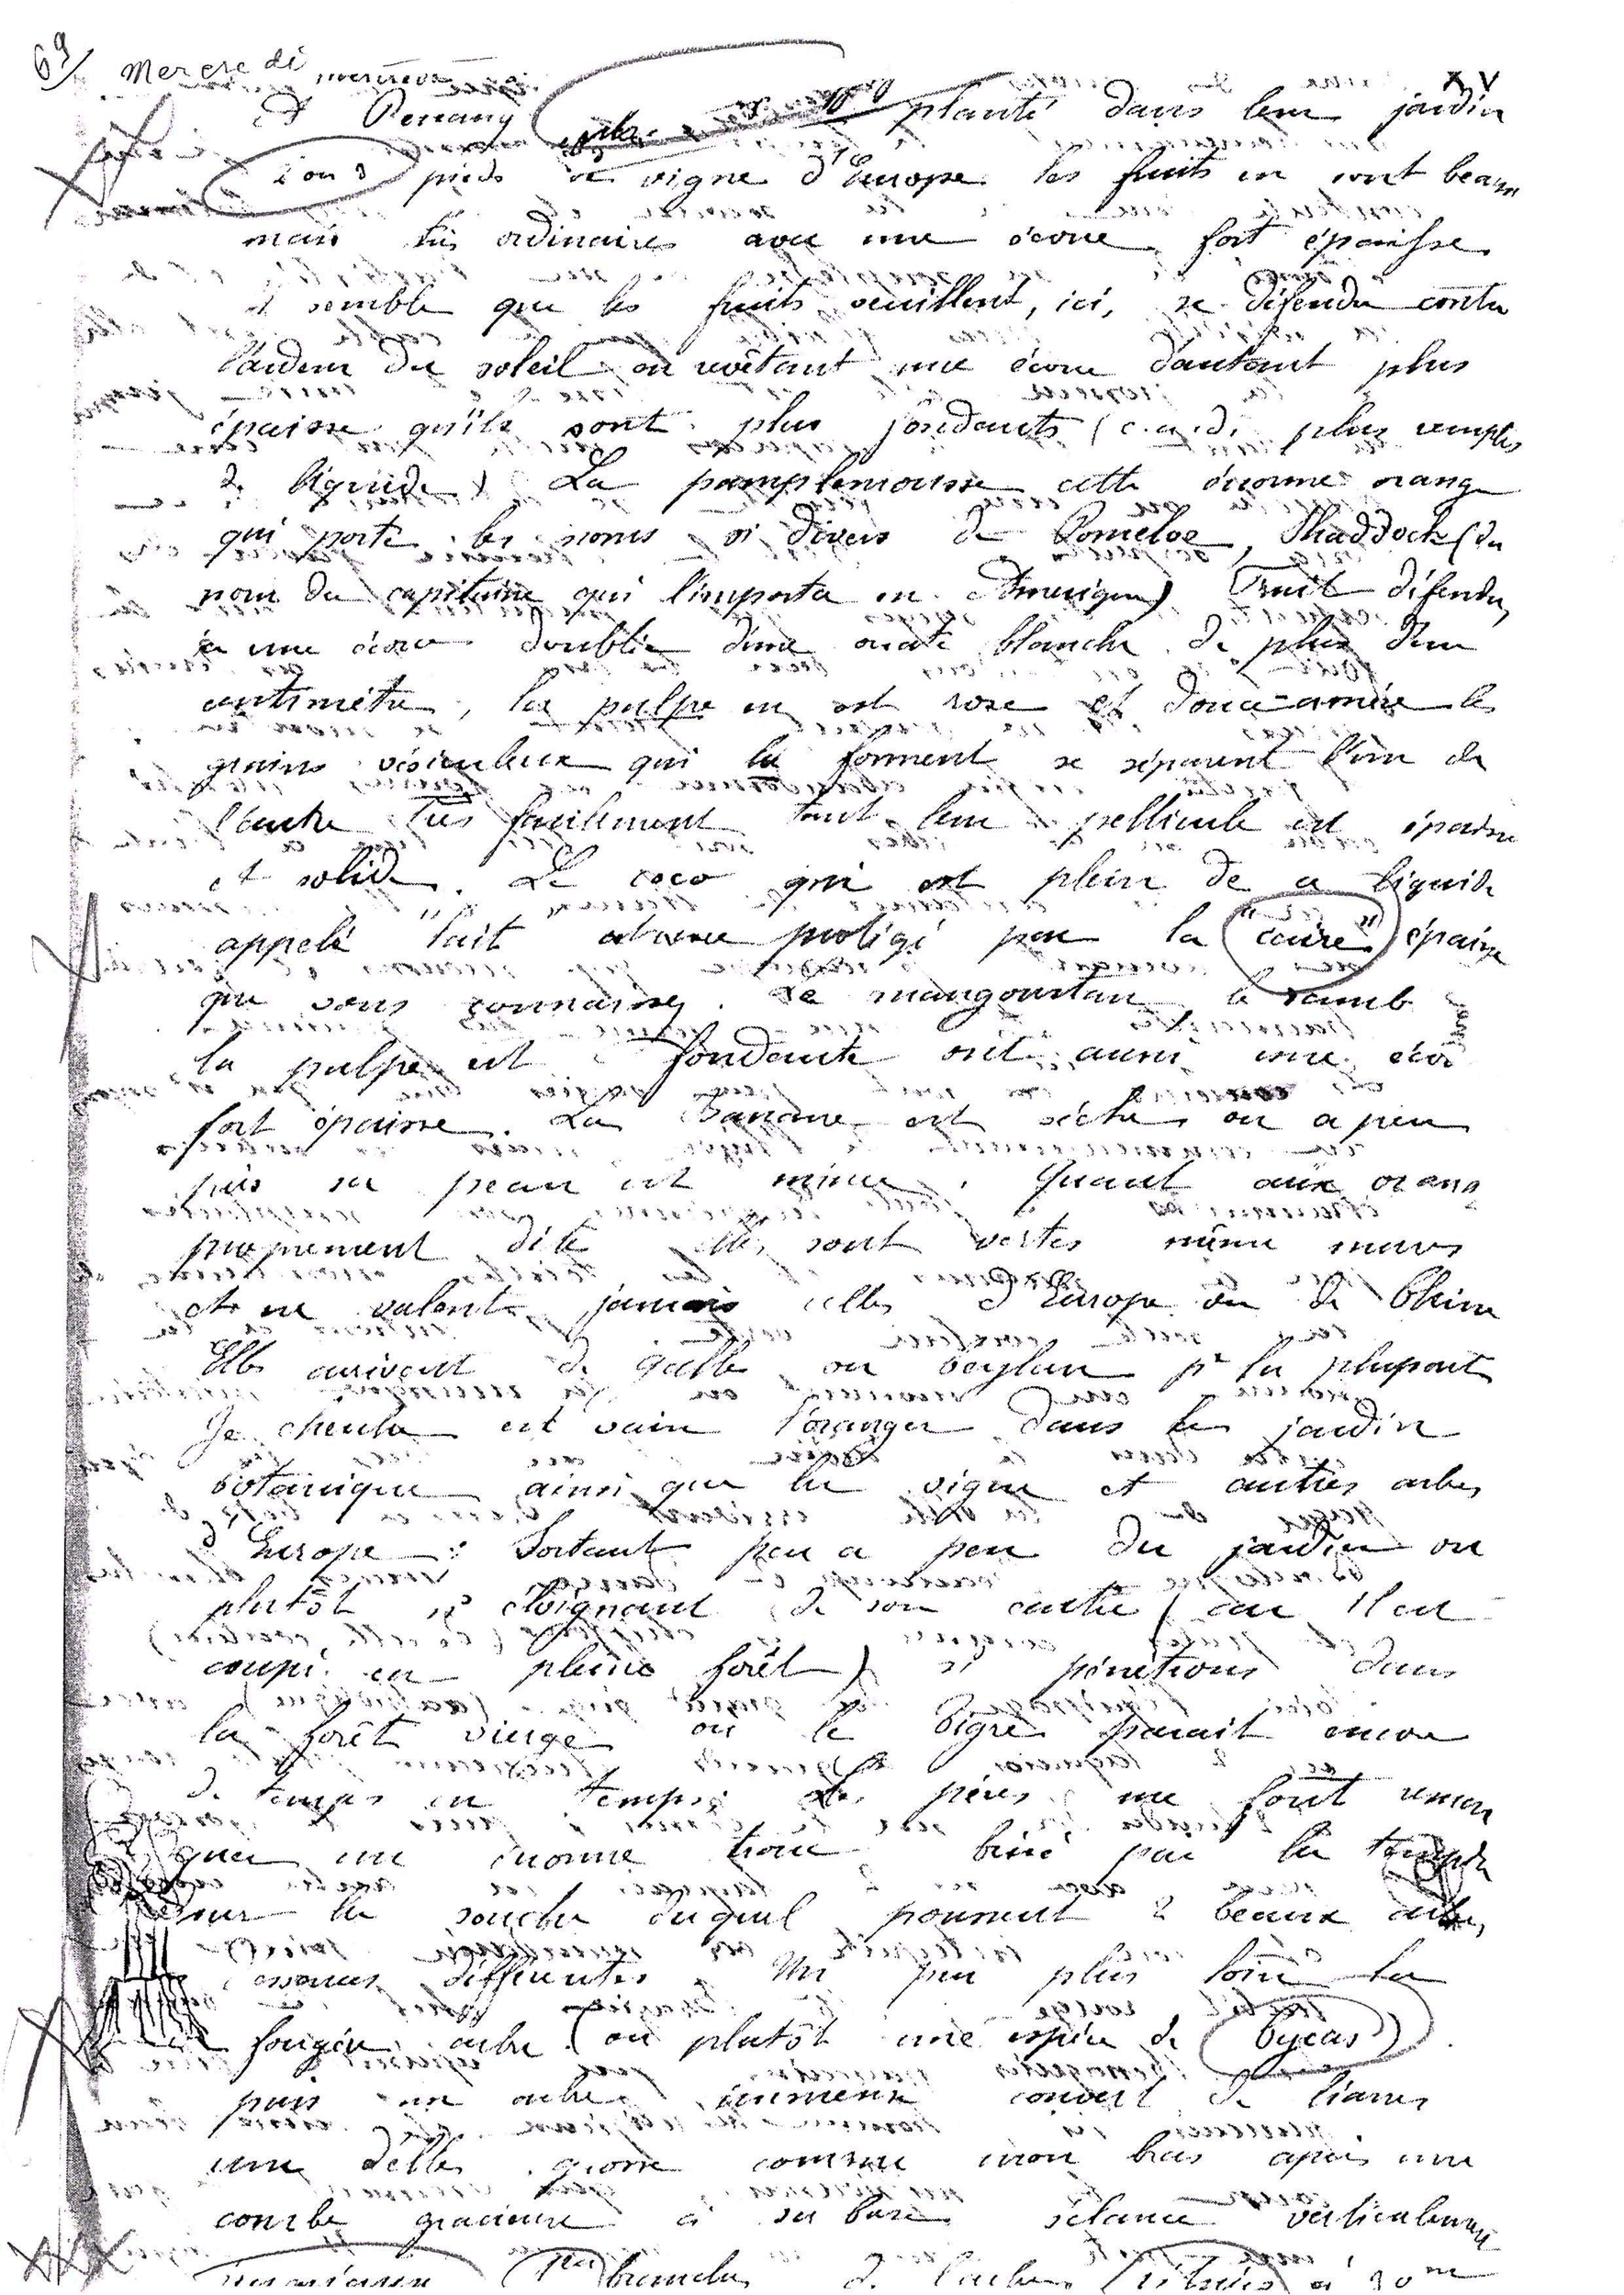 69/ Mercredi
XV
A Penang planté dans leur jardin
2 ou 3 pieds de vigne d'Europe les fruits en sont beaux
mais très ordinaires avec une écorce fort épaisse
il semble que les fruits veuillent, ici, se défendre contre
l'ardeur du soleil en revêtant une écorce d'autant plus
épaisse qu'ils sont plus fondants (c.a.d. plus remplis
de liquide) La pamplemousse cette énorme orange
qui porte les noms si divers de Pomeloe, Shaddock (du
nom du capitaine qui l'importa en Amérique) Fruit défendu,
a une écorce doublée d'une ouate blanche de plus d'un
centimètre, la pulpe en est rose et douce-amère les
grains vésiculeux qui la forment se séparent l'un de
l'autre très facilement tant leur pellicule est épaisse
et solide. Le coco qui est plein de ce liquide
appelé "lait" protégé par la "caire" épaisse
que vous connaissez. Le mangoustan, le ramb
la pulpe est fondante ont aussi une écor
fort épaisse. La banane est sèche ou a peu
près sa peau est mince. Quant aux orang
proprement dite elles sont vertes même mures
et ne valent jamais celles d'Europe ou de Chine
Elles arrivent de Galle ou Ceylan pr la plupart
Je cherche en vain l'oranger dans le jardin
botanique ainsi que la vigne et autres arbres
d'Europe. Sortant peu a peu du jardin ou
plutôt ns éloignant de son centre (car il est
coupé en pleine forêt) ns pénétrons dans
la forêt vierge où le tigre parait encore
de temps en temps. Les pères me font remar
quer un énorme tronc brisé par la tempête
sur la souche duquel poussent 2 beaux arbres,
d'essences différentes. Un peu plus loin la
fougère arbre (ou plutôt une espèce de Cycas)
puis un arbre immense couvert de lianes
une d'elles grosse comme mon bras après une
courbe gracieuse à sa base s'élance verticalement
branches de l'arbre situées à 30m